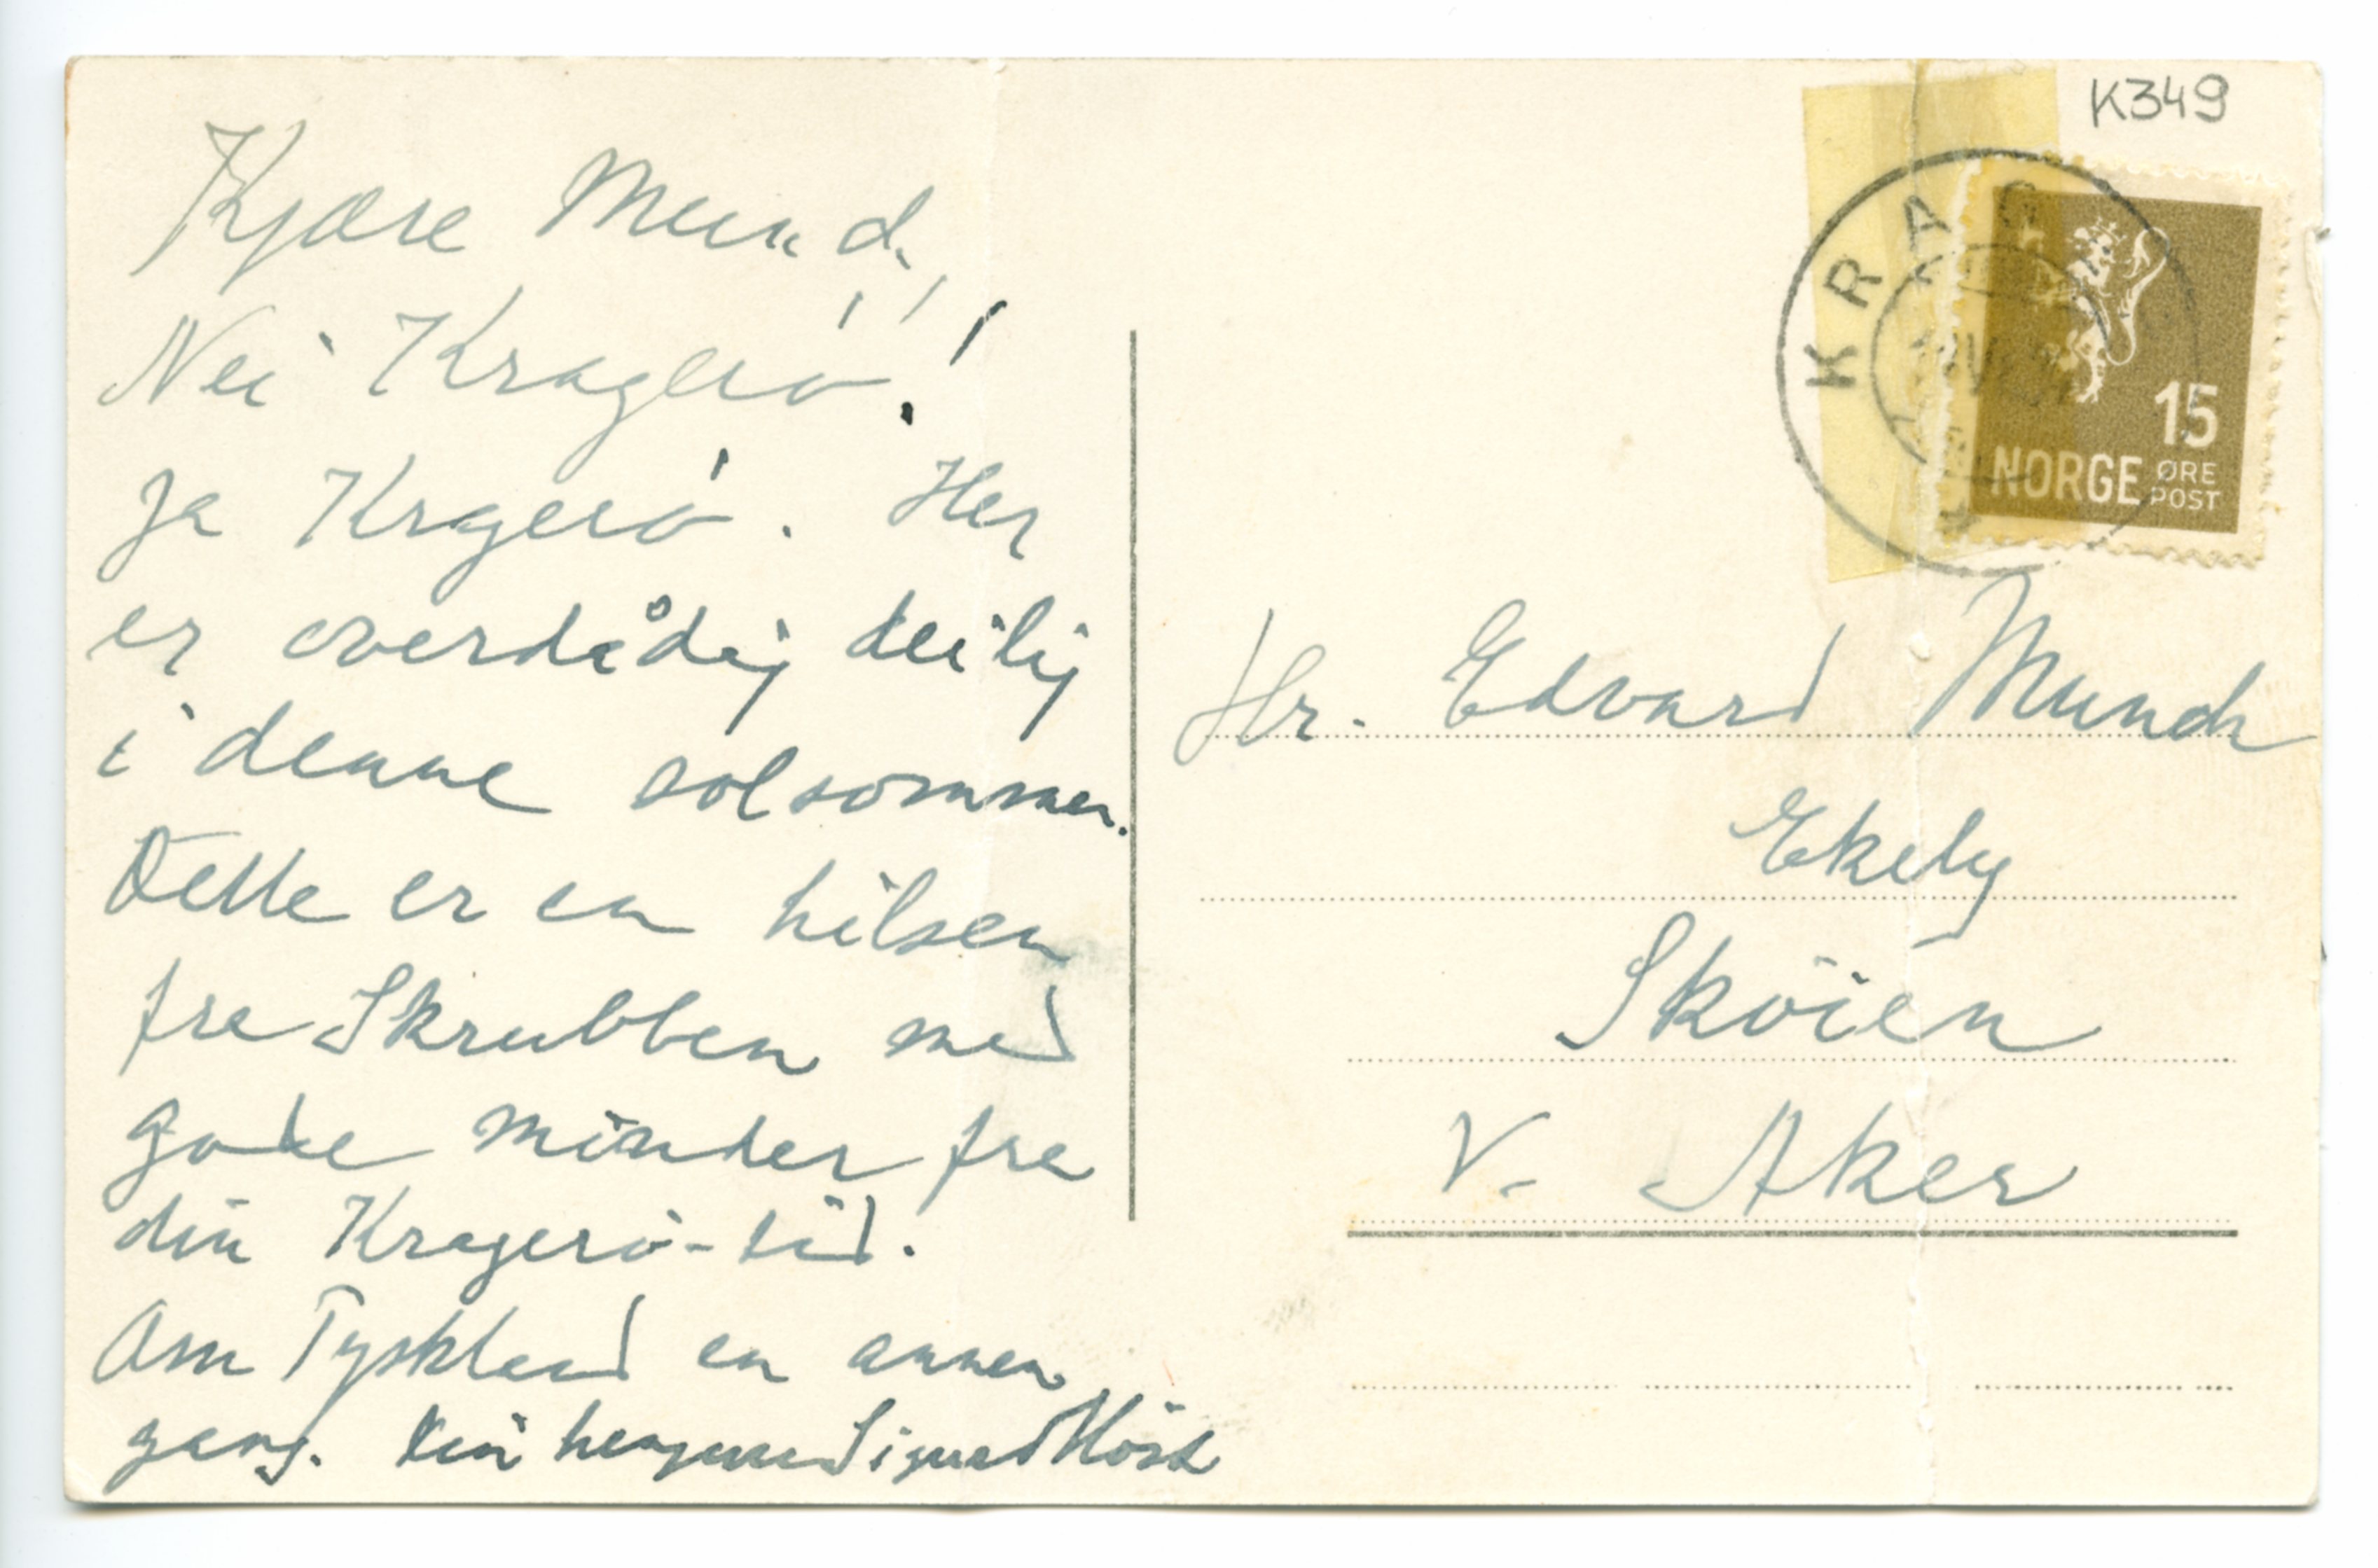 Kjære Munch,
Nei Kragerö!
Ja Kragerö. Her
er overdådig deilig
i denne solsommer.
Dette er en hilsen
fra Skrubben med
gode minder fra
din Kragerö-tid.
Om Tyskland en annen
gang. Din hengivne Sigurd Höst
K349
KRAGERØ
15
NORGE ØRE
POST
Hr. Edvard Munch
Ekely
Sköien
V. Aker